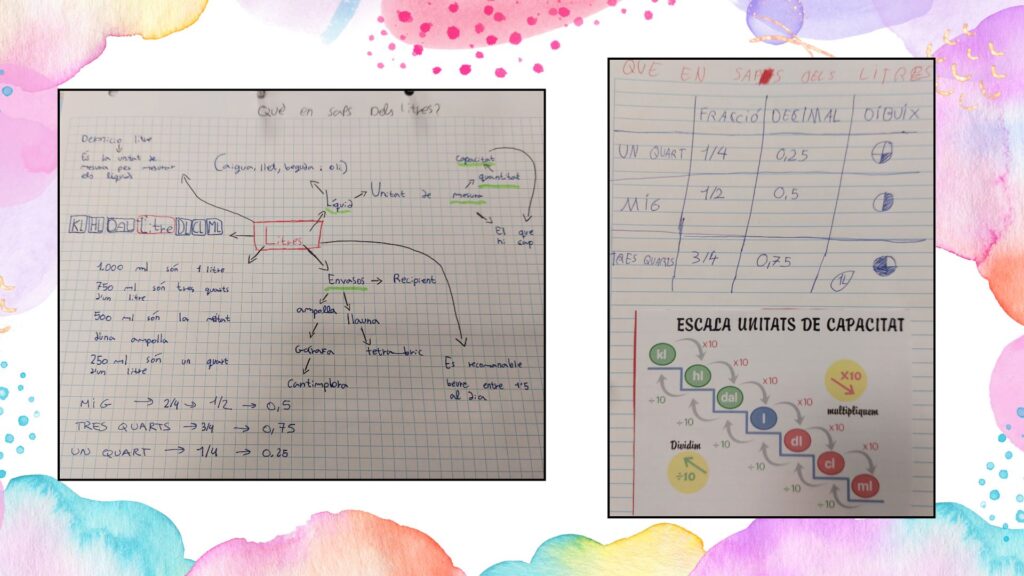 Què en saps Dels litres?
Definició litre
És la unitat de
mesura per mesurar
els líquids
(aigua, llet, beguda i oli)
Líquid
Unitat de
mesura
quantitat
capacitat
El que
hi cap
KL HL DAL Litre DL CL ML
Litres
1.000 ml són 1 litre
750 ml són tres quarts
d'un litre
500 ml són la mitat
d'una ampolla
250 ml són un quart
d'un litre
Envasos
Recipient
ampolla
llauna
Garrafa
tetra bric
Cantimplora
Es recomanable
beure entre 1'5
al dia
MiG → 2/4 → 1/2 → 0,5
TRES QUARTS → 3/4 → 0,75
UN QUART → 1/4 → 0.25
QUE EN SAPS DELS LITRES
FRACCIÓ DECIMAL DIBUIX
UN QUART 1/4 0,25
MiG 1/2 0,5
TRES QUARTS 3/4 0,75
1L
ESCALA UNITATS DE CAPACITAT
kl
x10
hl
x10
÷10
dal
x10
÷10
l
x10
÷10
dl
x10
÷10
cl
x10
÷10
ml
÷10
X10
multipliquem
Dividim
÷10